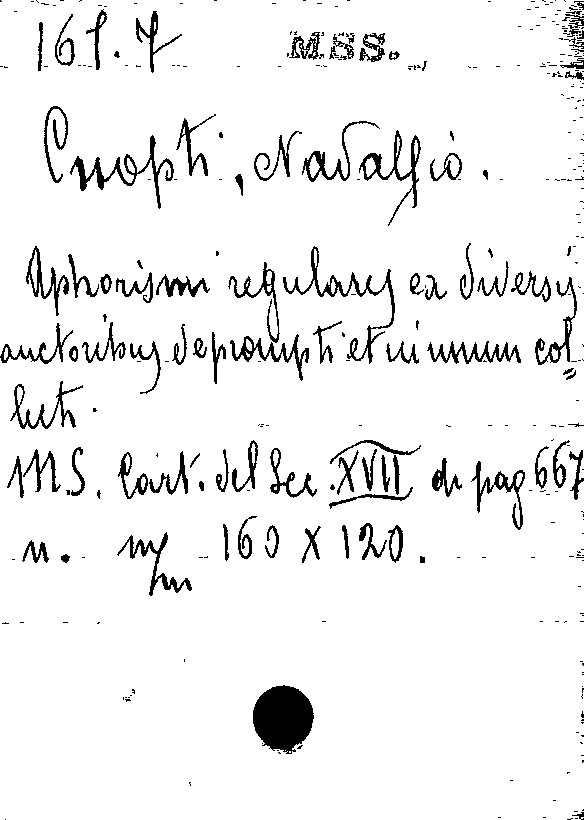 161.7 MSS.
Cnopti, Nadalfio.
Aphorismi regulares ex diversis
auctoribus deprompti et in unum col=
lecti.
MS. Cart. del Sec. XVII di pag 667
n. m/m 160 X 120.